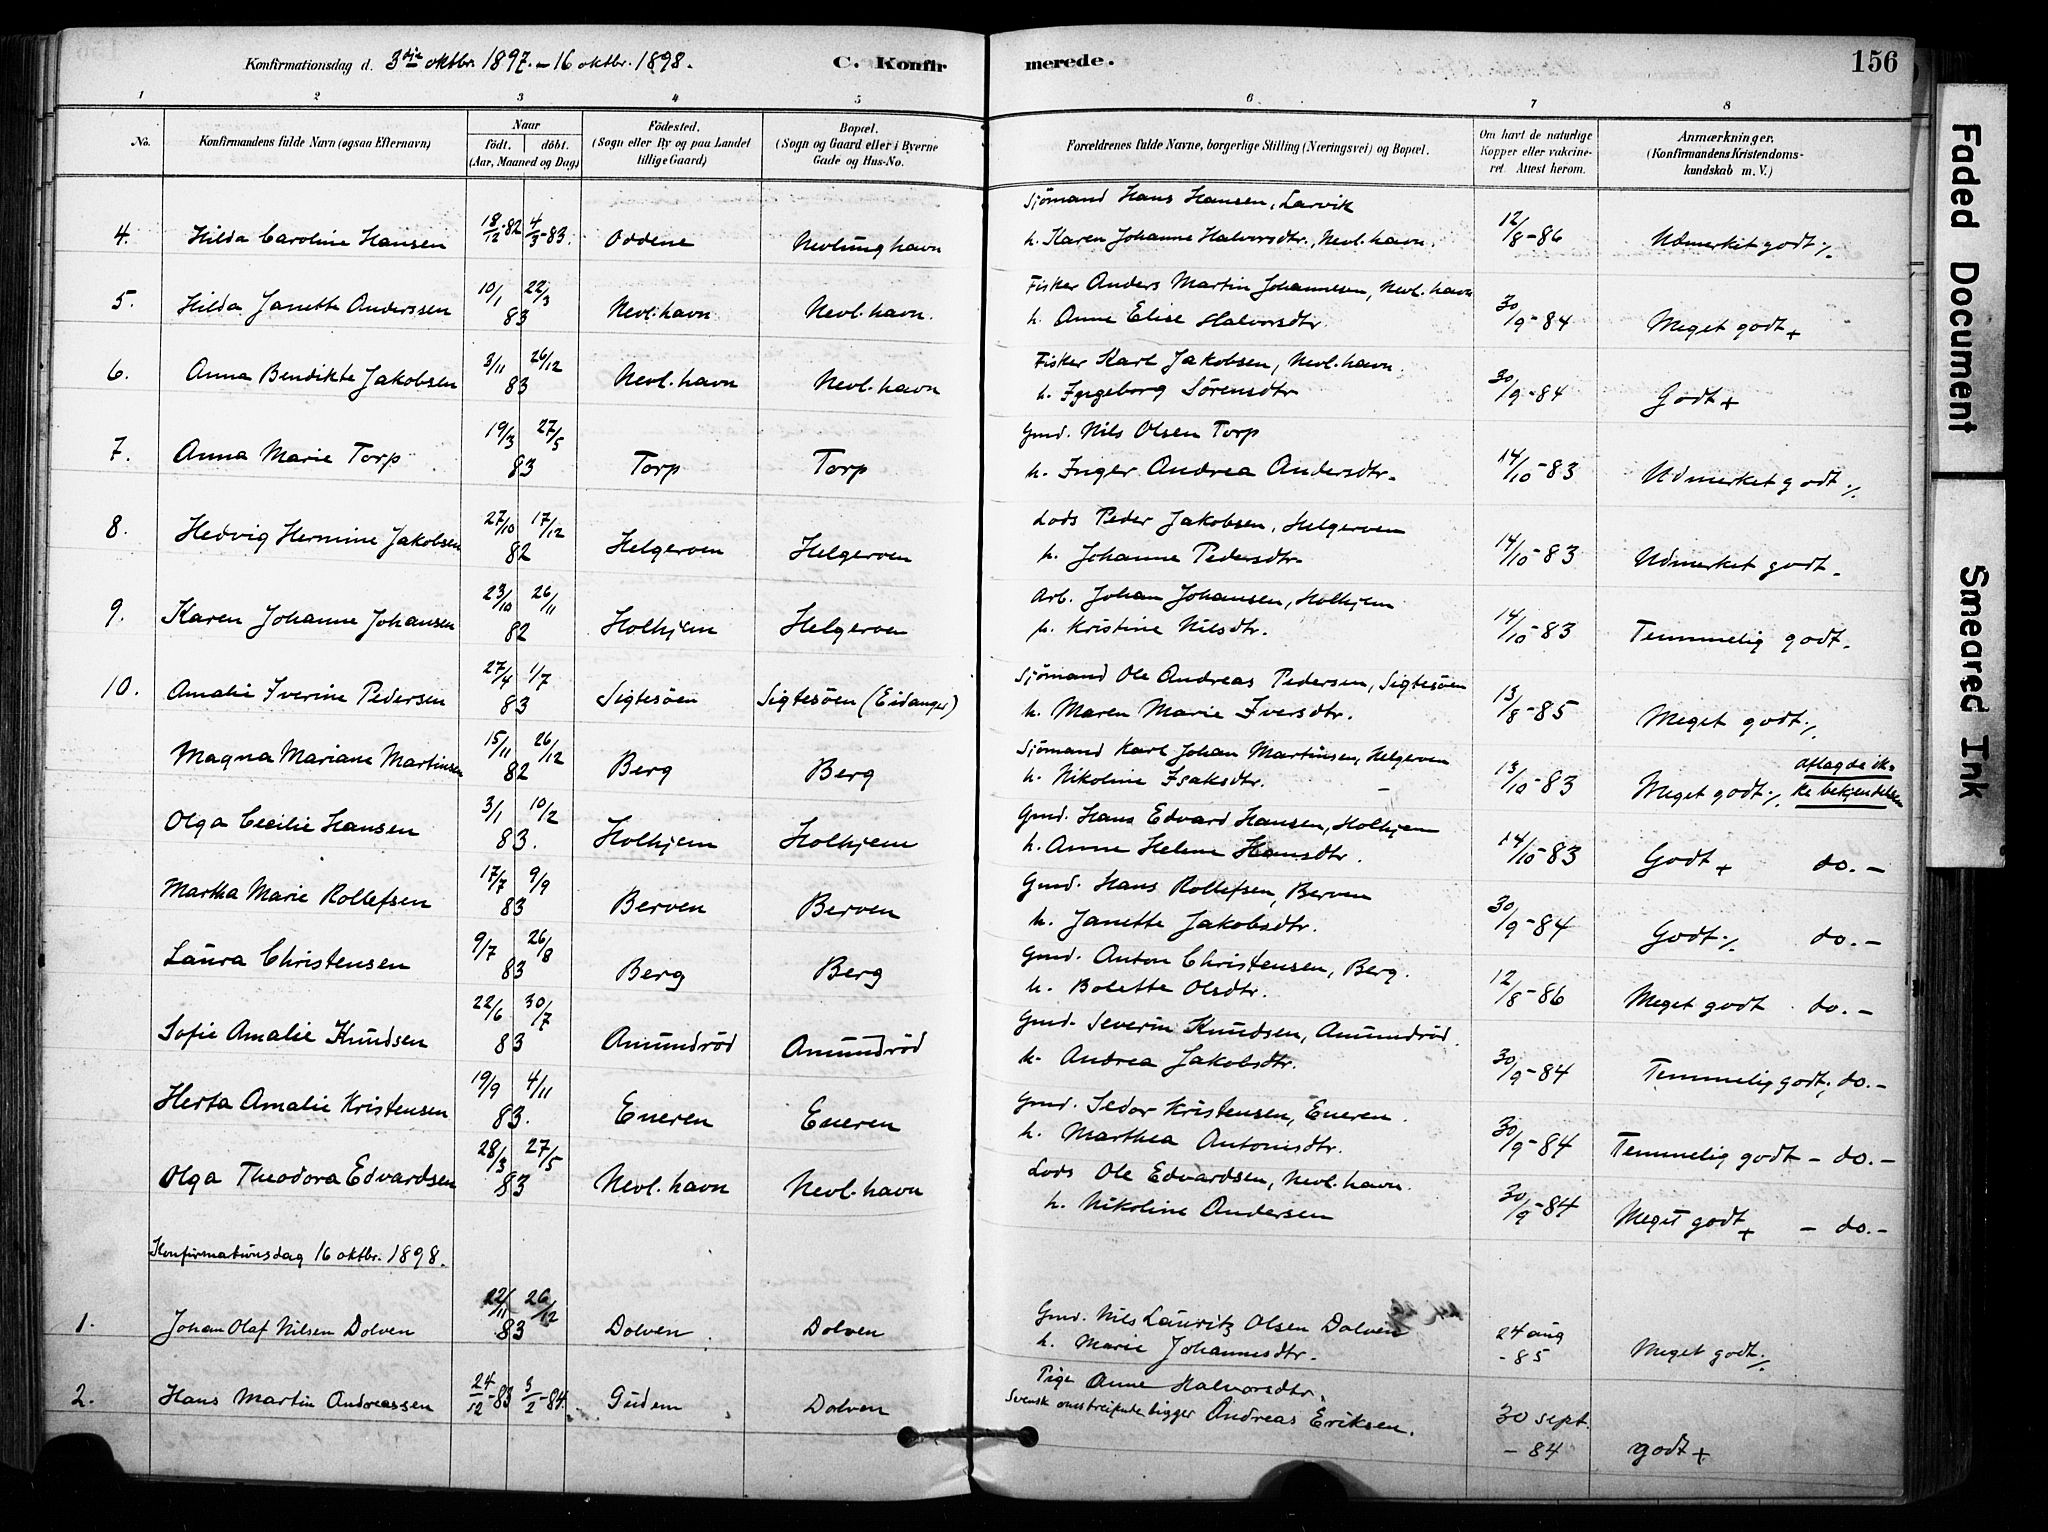 Konfirmationsdag d. 3die oktbr. 1897. - 16 oktbr. 1898. C. Konfirmerede. 156
1 2 3 4 5 6 7 8
No. Konfirmandens fulde Navn (ogsaa Efternavn) Naar födt. döbt. (Aar, Maaned og Dag) Födested. (Sogn eller By og paa Landet tillige Gaard) Bopæl. (Sogn og Gaard eller i Byerne Gade og Hus-No. Forældrenes fulde Navne, borgerlige Stilling (Næringsvei) og Bopæl. Om havt de naturlige Kopper eller vakcineret. Attest herom. Anmærkninger. (Konfirmandens Kristendomskundskab m. V.)
4. Hilda Caroline Hansen 18/12-82 4/3-83. Oddene Nevlunghavn Sjömand Hans Hansen, Larvik
h. Karen Johanne Halvorsdtr., Nevl.havn. 12/8-86 Udmerket godt ./.
5. Hilda Janette Anderssen 10/1 22/3 83 Nevl.havn Nevl.havn. Fisker Anders Martin Johannesen, Nevl.havn
h. Anne Elise Halvorsdtr 30/9-84 Meget godt +
6. Anna Bendikte Jakobsen 3/11 26/12 83 Nevl.havn Nevl.havn Fisker Karl Jakobsen, Nevl.havn.
h. Ingeborg Sörensdtr 30/9-84 Godt +
7. Anna Marie Torp 19/3 27/5 83 Torp Torp Gmd. Nils Olsen Torp
h. Inger Andrea Andersdtr. 14/10-83 Udmerket godt ./.
8. Hedvig Hermine Jakobsen 27/10 17/12 82 Helgerven Helgerven Lods Peder Jakobsen, Helgerven
h. Johanne Pedersdtr. 14/10-83 Udmerket godt.
9. Karen Johanne Johansen 23/10 26/11 82 Holhjem Helgerven Arb. Johan Johansen, Holhjem
h. Kristine Nilsdtr. 14/10-83 Temmelig godt.
10. Amalie Iverine Pedersen 27/4 1/7 83 Sigtesöen Sigtesöen (Eidanger) Sjömand Ole Andreas Pedersen, Sigtesöen
h. Maren Marie Iversdtr. 13/8-85 Meget godt ./.
Magna Mariane Martinsen 15/11 26/12 82 Berg Berg Sjömand Karl Johan Martinsen, Helgerven
h. Nikoline Isaksdtr. 13/10-83 Meget godt ./. aflagde ikke bekjendelsen
Olga Cecilie Hansen 3/1 10/2 83. Holhjem Holhjem Gmd. Hans Edvard Hansen, Holhjem
h. Anne Helene Hansdtr. 14/10-83 Godt + do. -
Martha Marie Rollefsen 17/7 9/9 83 Berven Berven Gmd. Hans Rollefsen, Berven
h. Janette Jakobsdtr. 30/9-84 Godt ./. do. -
Laura Christensen 9/7 26/8 83 Berg Berg Gmd. Anton Christensen, Berg.
h. Bolette Olsdtr. 12/8-86 Meget godt do. -
Sofie Amalie Knudsen 22/6 30/7 83 Amundröd Amundröd Gmd. Severin Knudsen, Amundröd.
h. Andrea Jakobsdtr. 30/9-84 Temmelig godt, do. -
Herta Amalie Kristensen 19/9 4/11 83. Eneren Eneren Gmd. Sedor Kristensen, Eneren.
h. Marthea Antonisdtr. 30/9-84 Temmelig godt - do. -
Olga Theodora Edvardsen 28/3 27/5 83 Nevl.havn Nevl.havn Lods Ole Edvardsen, Nevl.havn.
h. Nikoline Andersen 30/9-84 Meget godt + - do. -
Konfirmationsdag 16 oktbr. 1898.
1. Johan Olaf Nilsen Dolven 22/11 26/12 83 Dolven Dolven Gmd. Nils Lauritz Olsen Dolven
h. Marie Johannesdtr. 24 aug -85 Meget godt ./.
2. Hans Martin Andreassen 24/12-83 3/2-84. Gudem Dolven Pige Anne Halvorsdtr.
Svensk omstreifende ligger Andreas Eriksen. 30 sept. -84 godt +
Faded Document
Smeared Ink